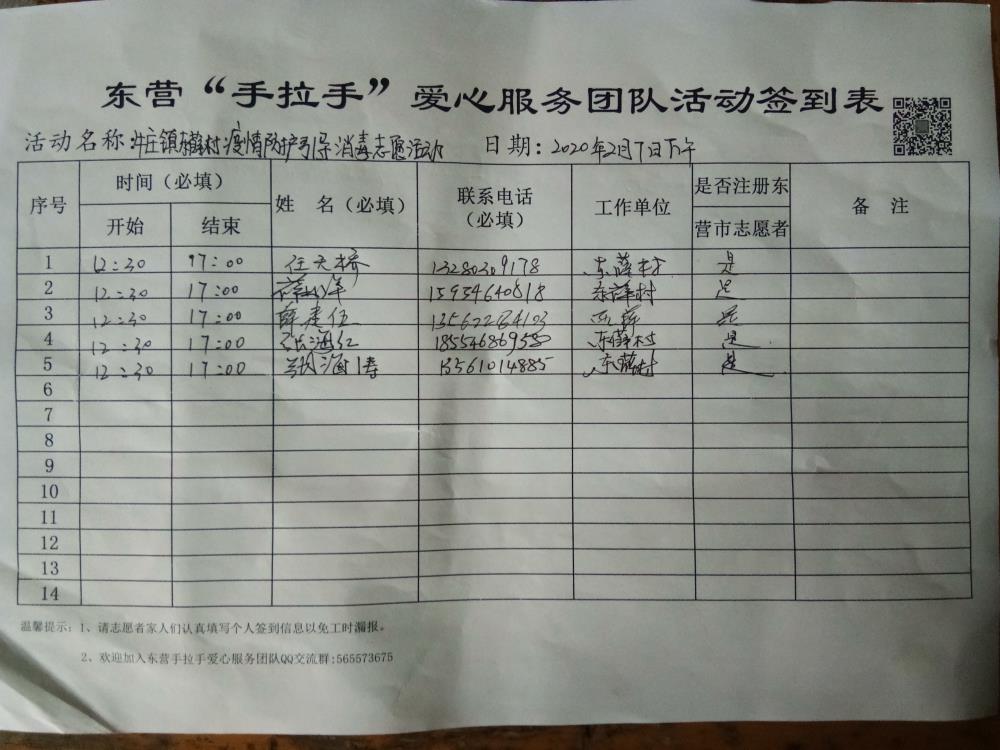 东营“手拉手”爱心服务团队活动签到表
活动名称:牛庄镇东薛村疫情防护引导消毒志愿活动 日期:2020年2月7日下午
序号 时间(必填) 姓 名(必填) 联系电话(必填) 工作单位 是否注册东营市志愿者 备 注
开始 结束
1 12:30 17:00 任天桥 13280309178 东薛村 是
2 12:30 17:00 15954640818 东薛村 是
3 12:30 17:00 薛建伍 东薛 是
4 12:30 17:00 张海红 东薛村 是
5 12:30 17:00 张海涛 13561014885 东薛村 是
6
7
8
9
10
11
12
13
14
温馨提示:1、请志愿者家人们认真填写个人签到信息以免工时漏报。
2、欢迎加入东营手拉手爱心服务团队QQ交流群:565573675